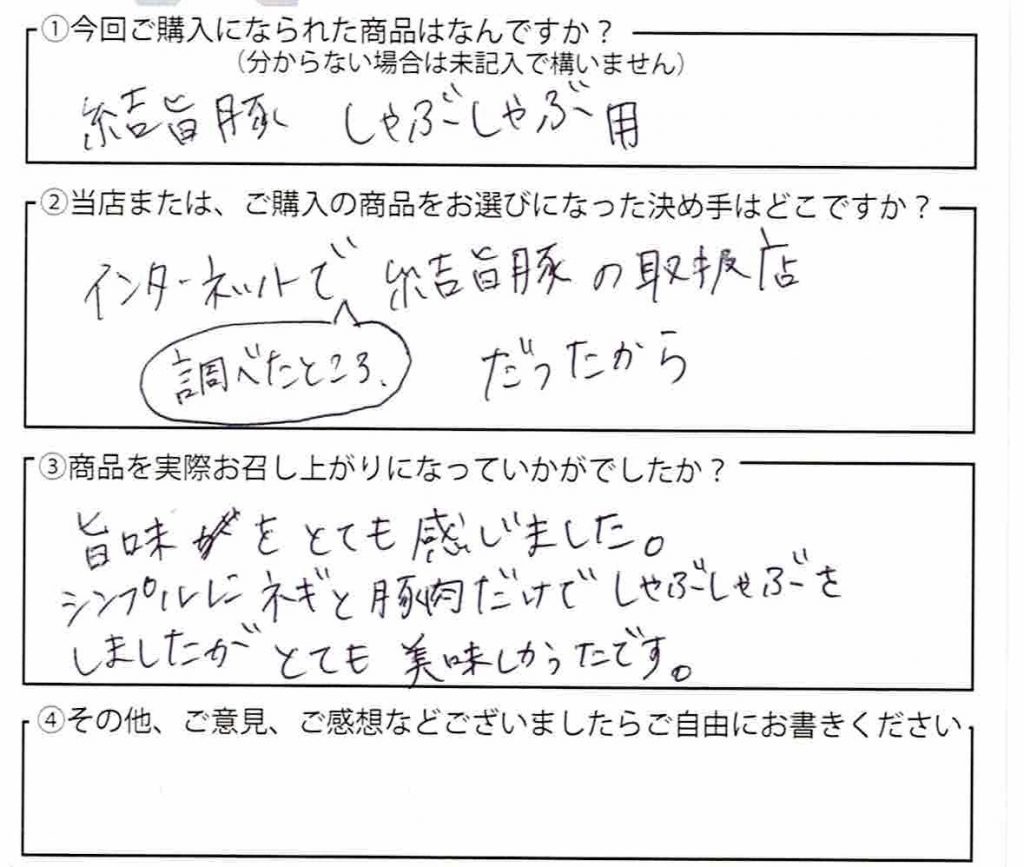 ①今回ご購入になられた商品はなんですか？
（分からない場合は未記入で構いません）
結旨豚 しゃぶしゃぶ用
②当店または、ご購入の商品をお選びになった決め手はどこですか？
インターネットで 結旨豚の取扱店
調べたところ、 だったから
③商品を実際お召し上がりになっていかがでしたか？
旨味をとても感じました。
シンプルにネギと豚肉だけでしゃぶしゃぶを
しましたがとても美味しかったです。
④その他、ご意見、ご感想などございましたらご自由にお書きください